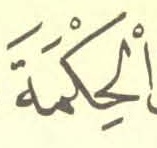 الْحِكْمَةَ